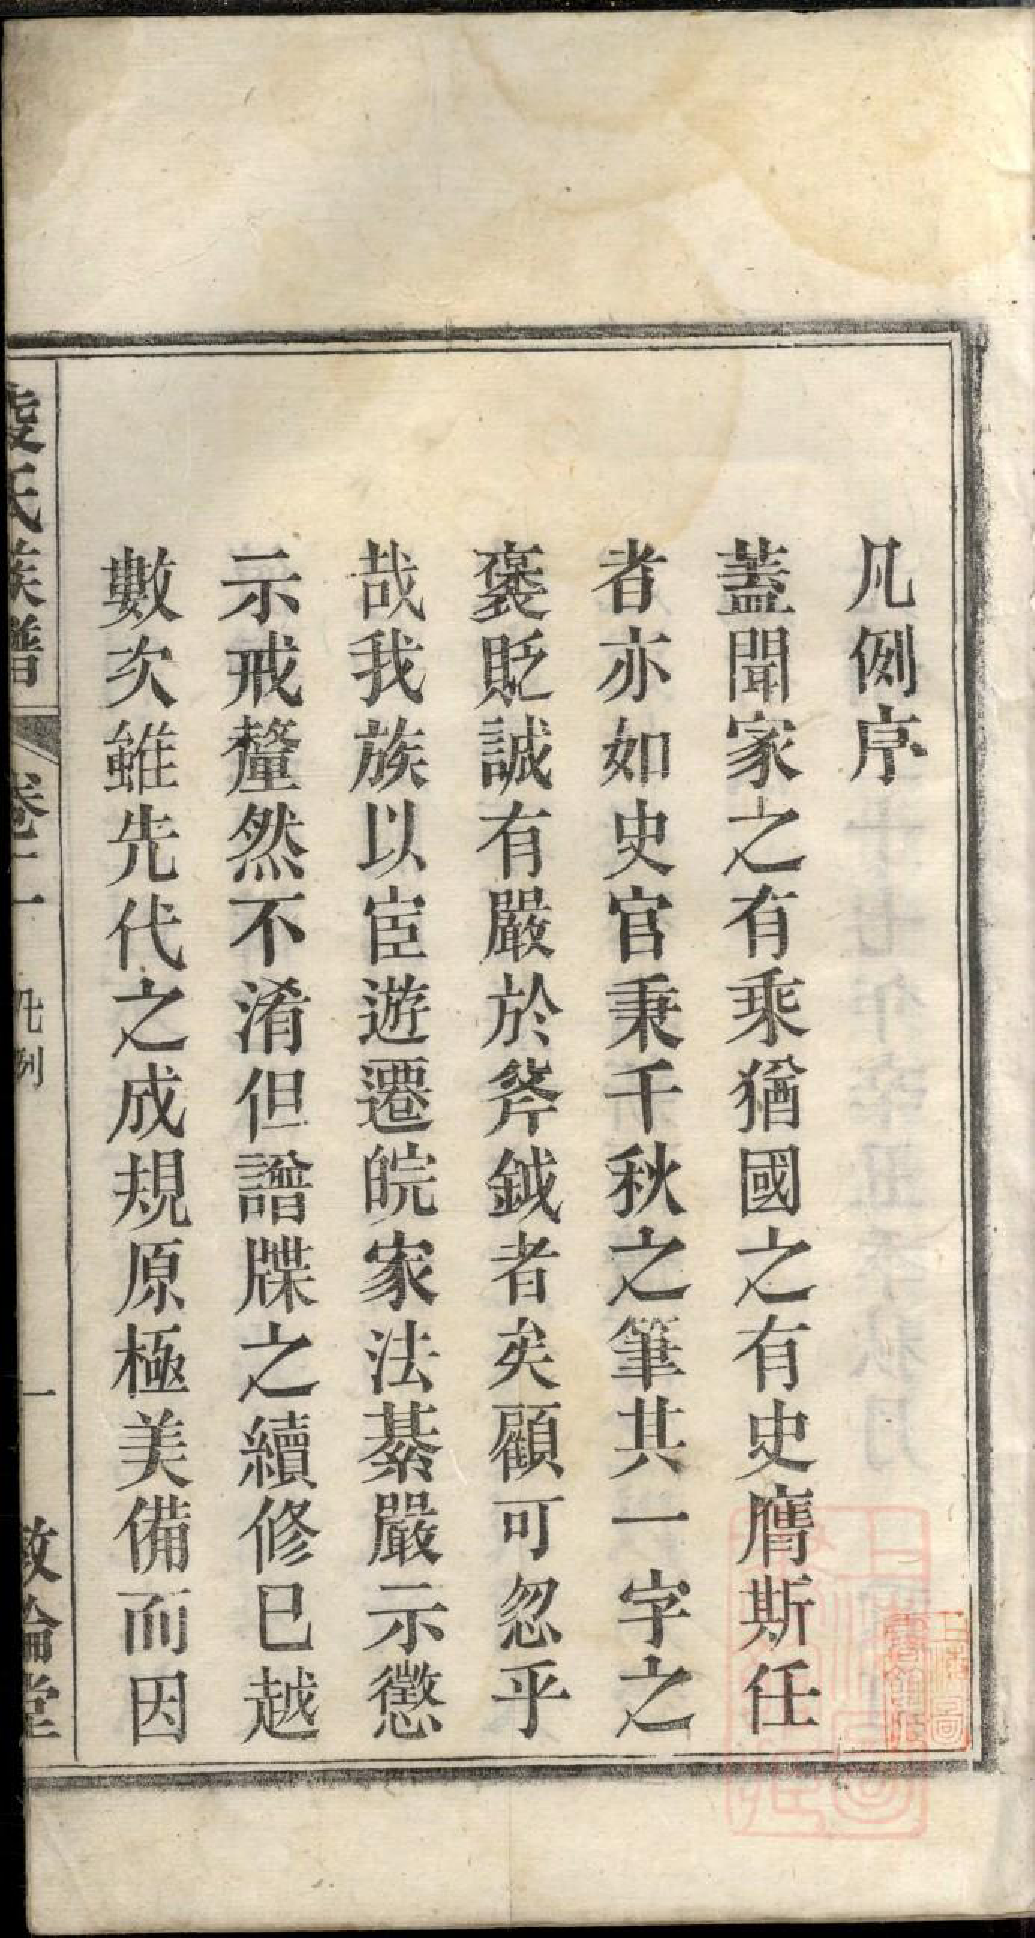 凡例序
蓋聞家之有乘猶國之有史膺斯任
者亦如史官秉千秋之筆其一字之
褒貶誠有嚴於斧鉞者矣顧可忽乎
哉我族以宦遊遷皖家法綦嚴示懲
示戒釐然不淆但譜牒之續修已越
數次雖先代之成規原極美備而因
凌氏族譜 卷一 凡例 一 敦倫堂